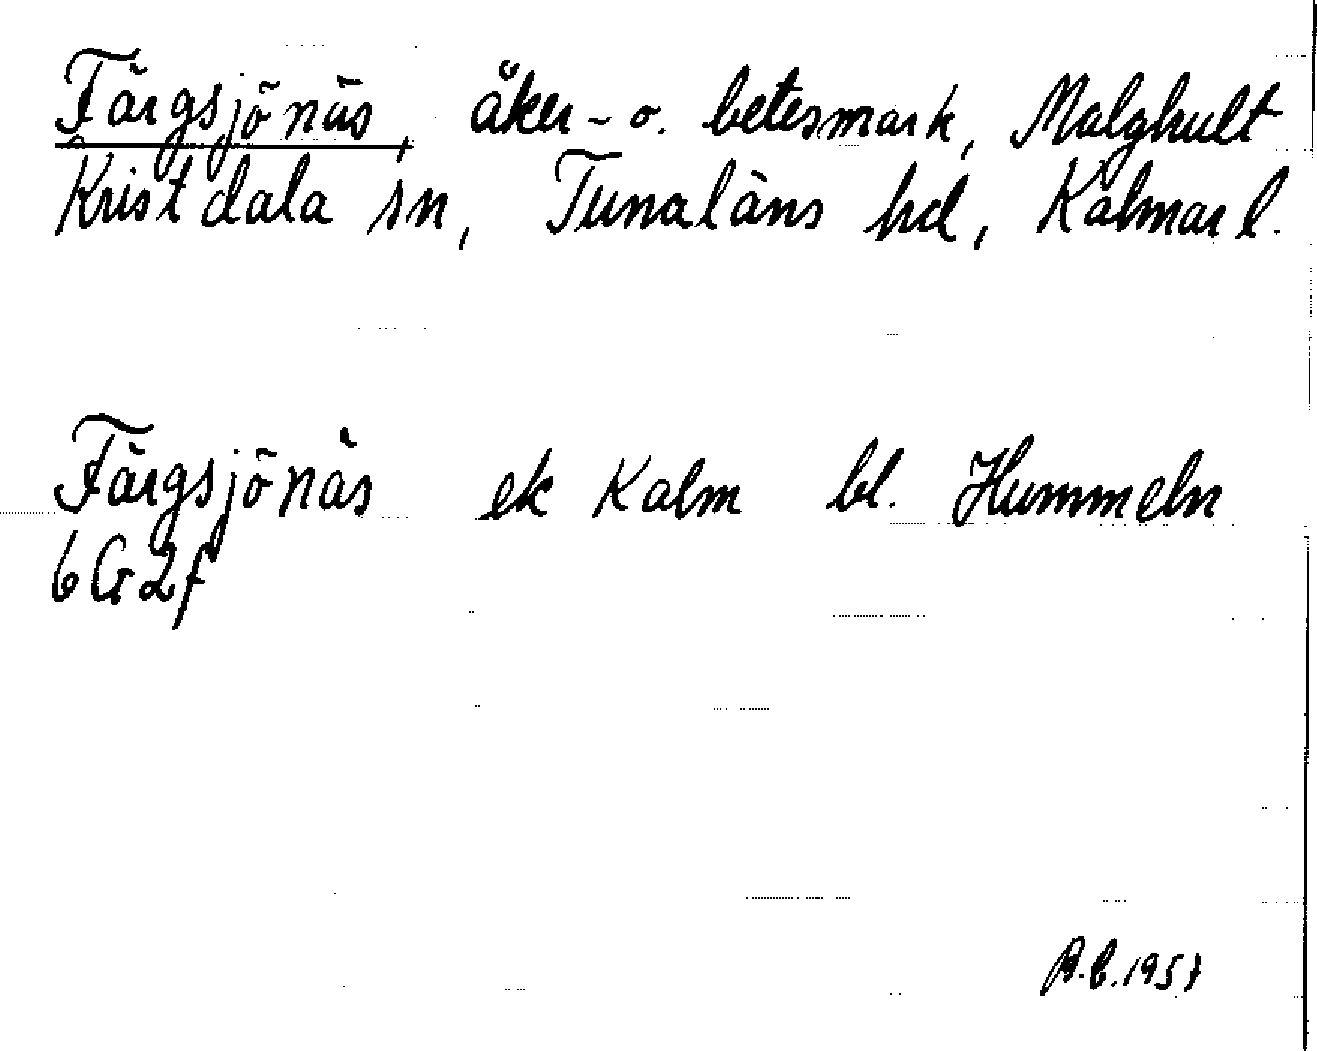 Färgsjönäs, åker- o. betesmark, Malghult
Kristdala sn, Tunaläns hd, Kalmar l.
Färgsjönäs ek Kalm bl. Hummeln
6G2f
1957